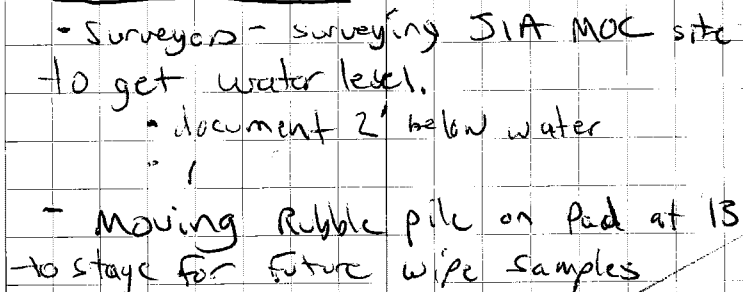 - Surveyors - surveying JIA MOC site
to get water level.
• document 2' below water
- Moving Rubble pile on Pad at 13
to stage for future wipe samples